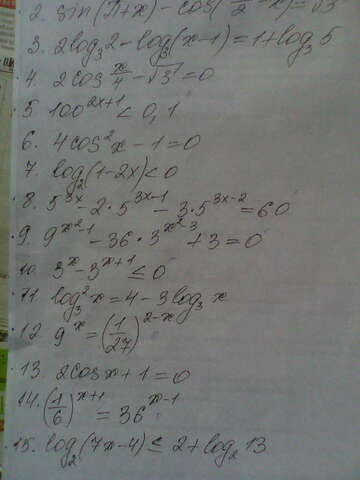 2. sin(π+x) - cos(π/2 - x) = √3
3. 2log₃2 - log₃(x-1) = 1 + log₃5
4. 2cos x/4 - √3 = 0
5. 100^(2x+1) < 0,1
6. 4cos²x - 1 = 0
7. log₂(1-2x) < 0
8. 5^(3x) - 2·5^(3x-1) - 3·5^(3x-2) = 60
9. 9^(x²-1) - 36·3^(x²-3) + 3 = 0
10. 3^x - 3^(x+1) ≤ 0
11. log₃²x = 4 - 3log₃x
12. 9^x = (1/27)^(2-x)
13. 2cosx + 1 = 0
14. (1/6)^(x+1) = 36^(x-1)
15. log₂(7x-4) ≤ 2 + log₂13